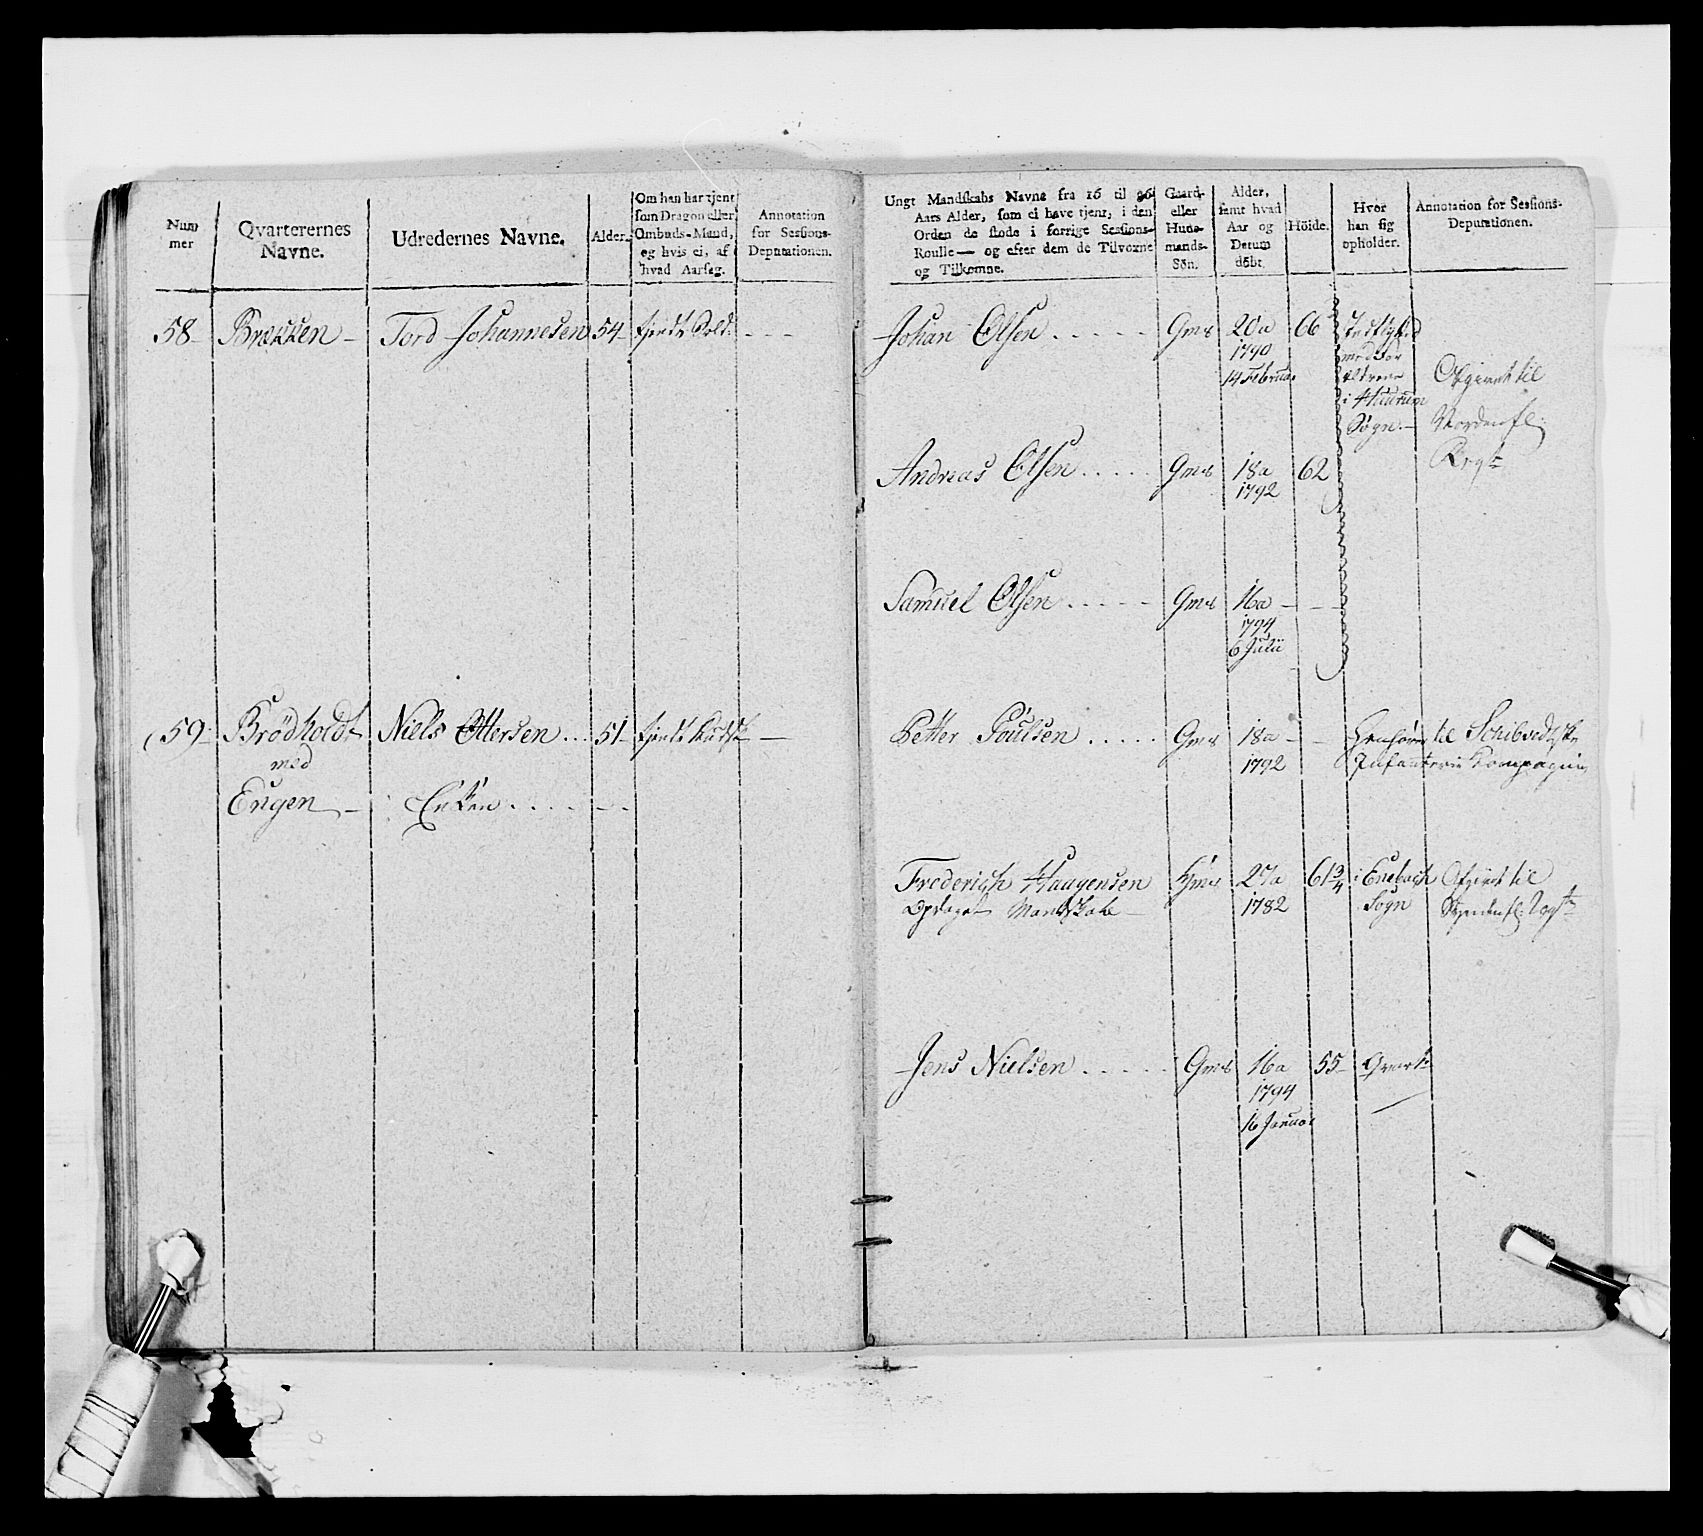 Num mer
Qvarterernes Navne.
Udredernes Navne.
Alder.
Om han har tjent
som Dragon eller
Ombuds-Mand,
og hvis ei, af
hvad Aarsag.
Annotation
for Sessions-
Deputationen.
58 Brækken Tord Johannesen 54 tjendt Sold:
59 Brödholdt Niels Ottersen 51
med
Engen Enken
Ungt Mandskabs Navne fra 16 til 36
Aars Alder, som ei have tjent, i den
Orden de stode i forrige Sessions-
Roulle— og efter dem de Tilvoxne
og Tilkomne.
Gaard-
eller
Huus-
mands-
Søn.
Alder,
samt hvad
Aar og
Datum
døbt.
Höide.
Hvor
han sig
opholder.
Annotation for Sessions-
Deputationen.
Johan Olsen Gms 20a 66
1790
14 Februar
i
Sogn
Afgivet til
Nordenfl:
Regt
Andreas Olsen Gms 18a 62
1792
Samuel Olsen Gms 16a
1794
6 Julii
Petter Poulsen Gms 18a til Schibvedtske
1792 Infanterie Kompagnie
Frederich Haagensen Hms 27a 61 3/4 i Enebach Afgivet til
Opdaget Mandskab 1782 Sogn Søndenfl: Regt
Jens Nielsen Gms 16a 55 Qvart
1794
16 Januar